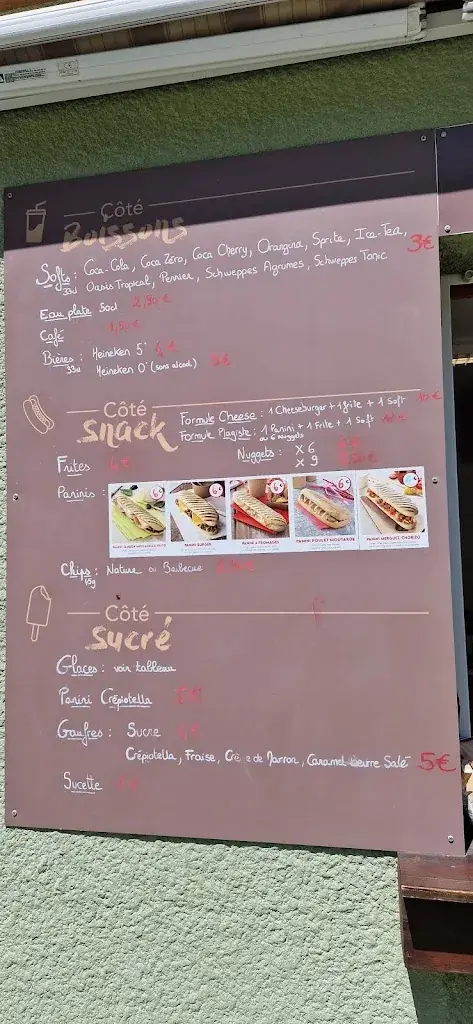 Côté
Boissons
Softs : Coca-Cola, Coca Zéro, Coca Cherry, Orangina, Sprite, Ice-Tea, 3€
33cl Oasis Tropical, Perrier, Schweppes Agrumes, Schweppes Tonic
Eau plate 50cl 2,50€
Café 1,50€
Bières : Heineken 5°
33cl Heineken 0° (sans alcool)
Côté
snack
Formule Cheese : 1 Cheeseburger + 1 frite + 1 Soft 10€
Formule Plagiste : 1 Panini + 1 Frite + 1 Soft
ou 6 nuggets
Frites
Nuggets : x 6
x 9
Paninis :
PANINI BURGER
PANINI 4 FROMAGES
PANINI POULET MOUTARDE
PANINI MERGUEZ, CHORIZO
Chips : Nature ou Barbecue
Côté
sucré
Glaces : voir tableau
Panini Crépiotella
Gaufres : Sucre
Crépiotella, Fraise, Crème de Marron, Caramel Beurre Salé 5€
Sucette